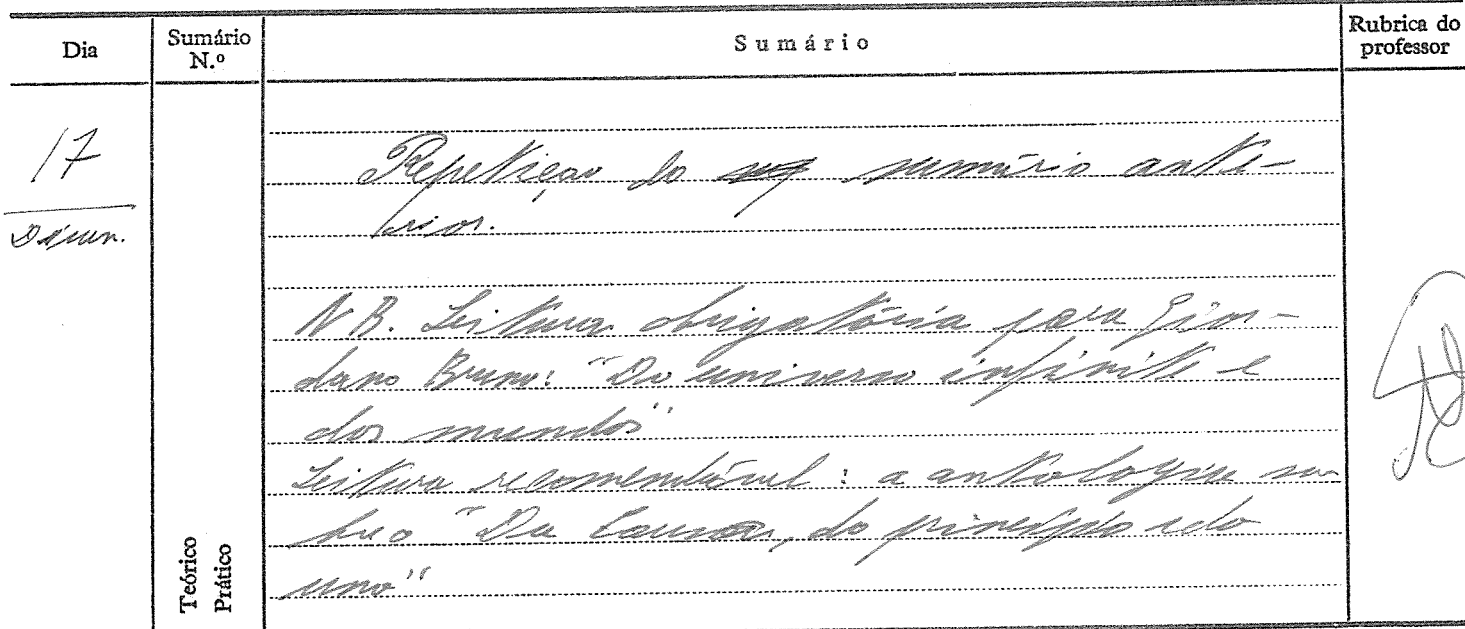 Dia
Sumário
N.º
Sumário
Rubrica do
professor
17
Repetição do sumário ante-
rior.
N.B. Leitura obrigatória para Gior-
dano Bruno: "Do universo infinito e
dos mundos"
Leitura recomendável: a antologia so-
bre o "Da Causa, do princípio e do
uno"
Teórico
Prático